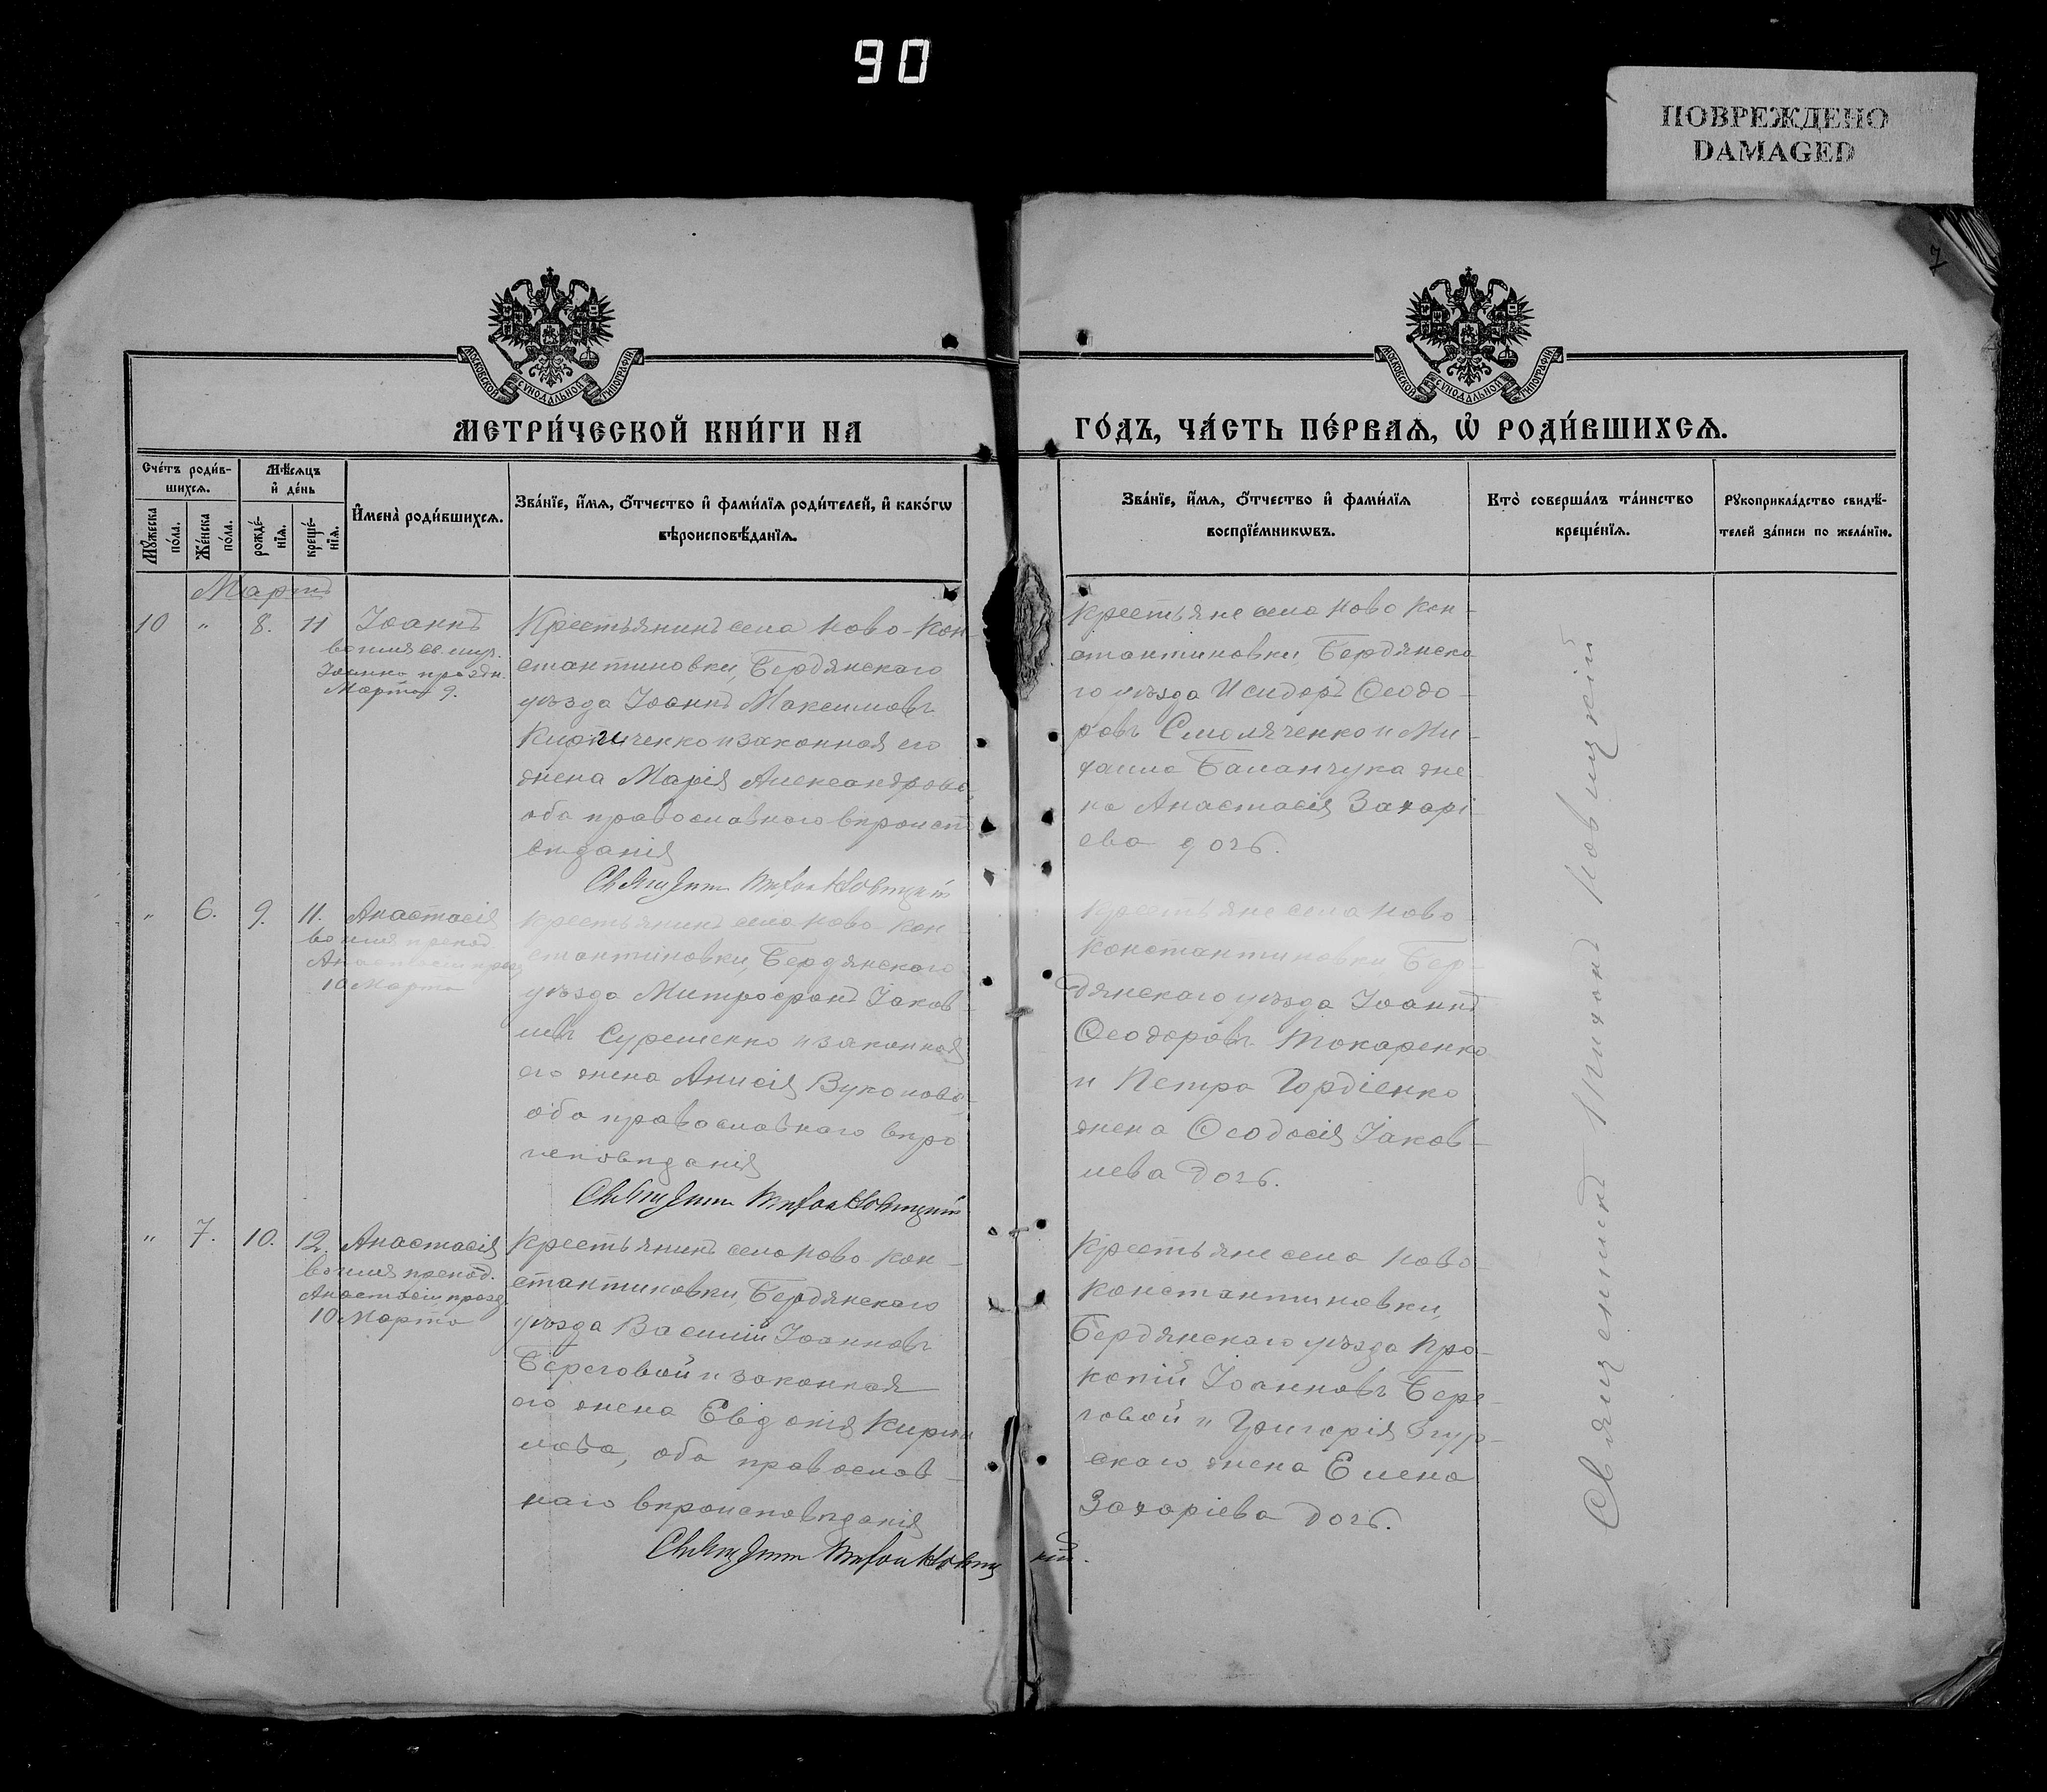 90
ПОВРЕЖДЕНО
DAMAGED
7
МОСКОВСКОЙ СѴНОДАЛЬНОЙ ТИПОГРАФІИ
МОСКОВСКОЙ СѴНОДАЛЬНОЙ ТИПОГРАФІИ
МЕТРИ́ЧЕСКОЙ КНИ́ГИ НА
ГО́ДЪ, ЧА́СТЬ ПЕ́РВАѦ, Ѡ҆ РОДИ́ВШИХСѦ.
Сче́тъ роди́в-
шихсѧ.
Мѣ́сѧцъ
и҆ де́нь
Мꙋ́жеска по́ла.
Же́нска по́ла.
рожде́-
нїѧ.
креще́-
нїѧ.
И҆мена̀ роди́вшихсѧ.
Зва́нїе, и҆́мѧ, ѻ҆́тчество и҆ фами́лїѧ роди́телей, и҆ како́гѡ
вѣроисповѣ́данїѧ.
Зва́нїе, и҆́мѧ, ѻ҆́тчество и҆ фами́лїѧ
воспрїе́мникѡвъ.
Кто̀ соверша́лъ та́инство
креще́нїѧ.
Рꙋкоприкла́дство свидѣ́-
телей за́писи по жела́нїю.
Мартъ
10 " 8. 11 Іоаннъ
во имя св.
Іоанна праздн.
Марта 9.
Крестьянинъ села Ново-Кон-
стантиновки, Бердянскаго
уѣзда Іоаннъ Максимовъ
и законная его
жена Марія Александрова,
оба православнаго вѣроиспо
вѣданія
Священник Тихон Новицкій
Крестьяне села Ново Кон-
стантиновки, Бердянска
го уѣзда Исидоръ Ѳеодо-
ровъ Смоляченко и Ми-
хаила Баланчука же-
на Анастасія Захарі
ева дочь.
" 6. 9. 11. Анастасія
во имя препод.
Анастасіи празд
10 Марта
Крестьянинъ села Ново Кон-
стантиновки, Бердянскаго
уѣзда Митрофанъ Іаков-
левъ Суременко и законная
его жена Анисія Вуколова,
оба православнаго вѣро
исповѣданія
Священник Тихон Новицкій
Крестьяне села Ново-
Константиновки Бер-
дянскаго уѣзда Іоаннъ
Ѳеодоровъ Токаренко
и Петра Гордіенко
жена Ѳеодосія Іаков-
лева дочь.
" 7. 10. 12. Анастасія
во имя препод.
Анастасіи празд.
10 Марта
Крестьянинъ села Ново Кон-
стантиновки, Бердянскаго
уѣзда Василій Іоанновъ
Береговой и законная
его жена Евдокія Кирил
лова, оба православ-
наго вѣроисповѣданія
Священник Тихон Новицкій.
Крестьяне села Ново-
Константиновки,
Бердянскаго уѣзда Про-
копій Іоанновъ Бере-
говой и Григорія Згур-
скаго жена Елена
Захаріева дочь.
Священникъ Тихонъ Новицкій